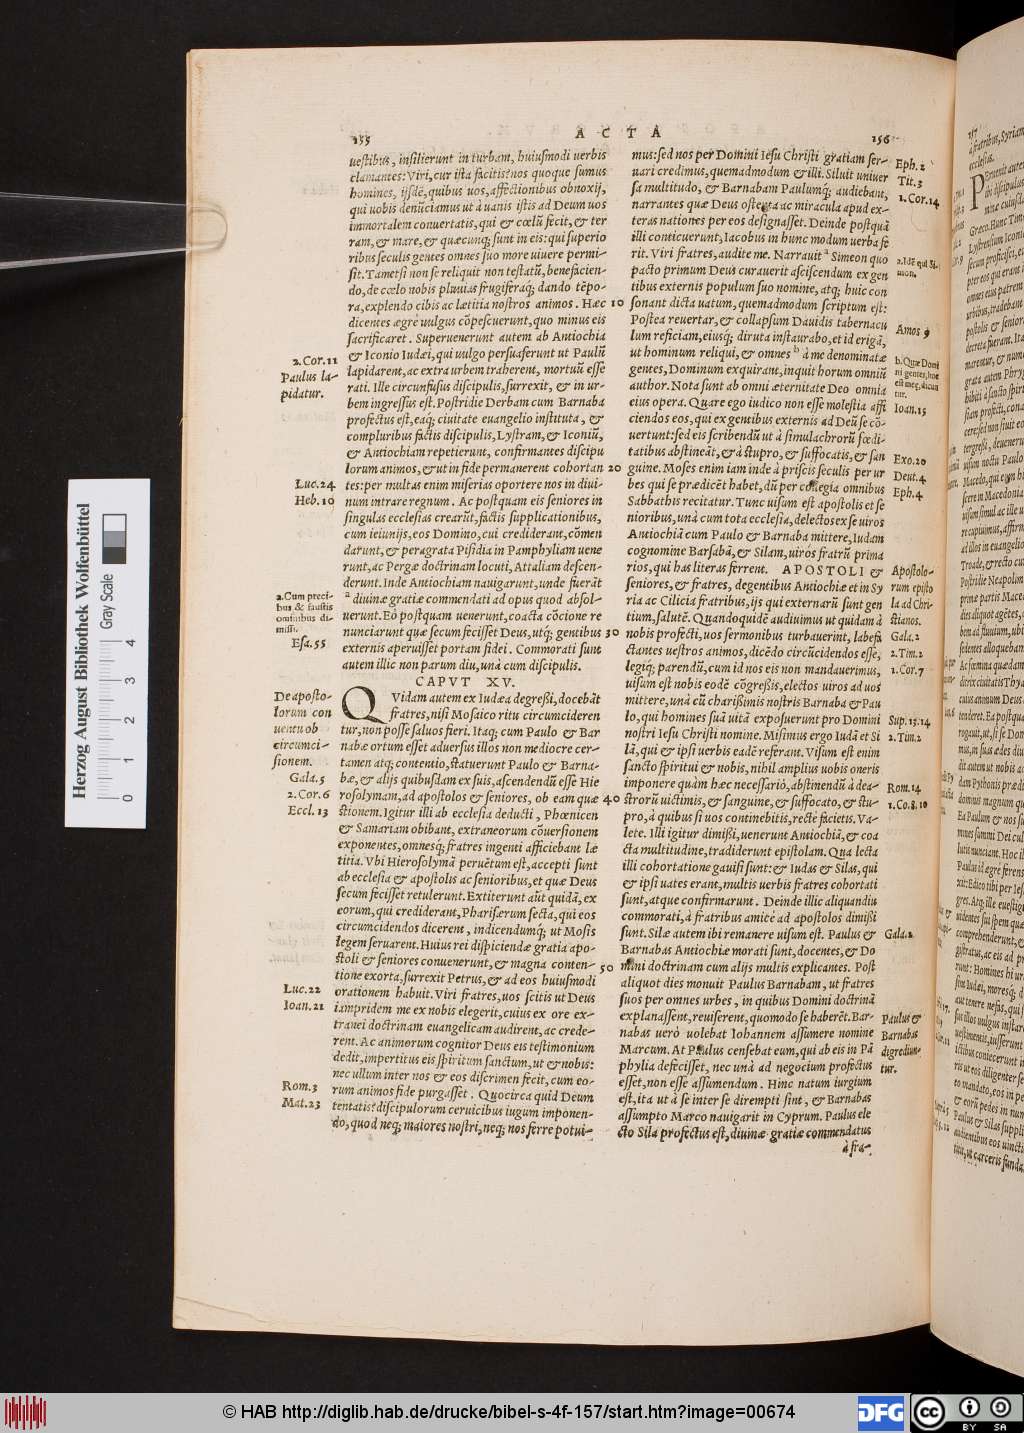 155
ACTA
156
uestibus, insilierunt in turbam, huiusmodi uerbis
clamantes: Viri, cur ista facitis? nos quoque sumus
homines, ijsdē, quibus uos, affectionibus obnoxij,
qui uobis denūciamus ut à uanis istis ad Deum uos
immortalem conuertatis, qui & cœlū fecit, & ter
ram, & mare, & quæcunq; sunt in eis: qui superio
ribus seculis gentes omnes suo more uiuere permi-
sit. Tametsi non se reliquit non testatū, benefacien-
do, de cœlo nobis pluuias frugiferaq; dando tēpo-
ra, explendo cibis ac lætitia nostros animos. Hæc 10
dicentes ægrè uulgus cōpescuerunt, quo minus eis
sacrificaret. Superuenerunt autem ab Antiochia
& Iconio Iudæi, qui uulgo persuaserunt ut Paulū
lapidarent, ac extra urbem traherent, mortuū esse
rati. Ille circunfusus discipulis, surrexit, & in ur-
bem ingressus est. Postridie Derbam cum Barnaba
profectus est, eaq; ciuitate euangelio instituta, &
compluribus factis discipulis, Lystram, & Iconiū,
& Antiochiam repetierunt, confirmantes discipu
lorum animos, & ut in fide permanerent cohortan 20
tes: per multas enim miserias oportere nos in diui-
num intrare regnum. Ac postquam eis seniores in
singulas ecclesias crearūt, factis supplicationibus,
cum ieiunijs, eos Domino, cui crediderant, cōmen
darunt, & peragrata Pisidia in Pamphyliam uene
runt, ac Pergæ doctrinam locuti, Attaliam descen-
derunt. Inde Antiochiam nauigarunt, unde fuerāt
a diuinæ gratiæ commendati ad opus quod absol-
uerunt. Eò postquam uenerunt, coacta cōcione re
nunciarunt quæ secum fecisset Deus, utq; gentibus 30
externis aperuisset portam fidei. Commorati sunt
autem illic non parum diu, unà cum discipulis.
CAPVT XV.
QVidam autem ex Iudæa degressi, docebāt
fratres, nisi Mosaico ritu circumcideren
tur, non posse saluos fieri. Itaq; cum Paulo & Bar
nabæ ortum esset aduersus illos non mediocre cer-
tamen atq; contentio, statuerunt Paulo & Barna-
bæ, & alijs quibusdam ex suis, ascendendū esse Hie
rosolymam, ad apostolos & seniores, ob eam quæ 40
stionem. Igitur illi ab ecclesia deducti, Phœnicen
& Samariam obibant, extraneorum cōuersionem
exponentes, omnesq; fratres ingenti afficiebant læ
titia. Vbi Hierosolymā peruētum est, accepti sunt
ab ecclesia & apostolis ac senioribus, et quæ Deus
secum fecisset retulerunt. Extiterunt aūt quidā, ex
eorum, qui crediderant, Pharisærum secta, qui eos
circumcidendos dicerent, indicendumq; ut Mosis
legem seruarent. Huius rei dispiciendæ gratia apo-
stoli & seniores conuenerunt, & magna conten- 50
tione exorta, surrexit Petrus, & ad eos huiusmodi
orationem habuit. Viri fratres, uos scitis ut Deus
iampridem me ex nobis elegerit, cuius ex ore ex-
tranei doctrinam euangelicam audirent, ac crede-
rent. Ac animorum cognitor Deus eis testimonium
dedit, impertitus eis spiritum sanctum, ut & nobis:
nec ullum inter nos & eos discrimen fecit, cum eo-
rum animos fide purgasset. Quocirca quid Deum
tentatis? discipulorum ceruicibus iugum imponen-
do, quod neq; maiores nostri, neq; nos ferre potui-
2. Cor. 11
Paulus la-
pidatur.
Luc. 24
Heb. 10
a. Cum preci-
bus & faustis
ominibus di-
missi.
Esa. 55
De aposto-
lorum con
uentu ob
circumci-
sionem.
Gala. 5
2. Cor. 6
Eccl. 13
Luc. 22
Ioan. 21
Rom. 3
Mat. 23
mus: sed nos per Domini Iesu Christi gratiam ser-
uari credimus, quemadmodum & illi. Siluit uniuer
sa multitudo, & Barnabam Paulumq; audiebant,
narrantes quæ Deus ostēta ac miracula apud ex-
teras nationes per eos designasset. Deinde postquā
illi conticuerunt, Iacobus in hunc modum uerba fe
rit. Viri fratres, audite me. Narrauit a Simeon quo
pacto primum Deus curauerit asciscendum ex gen
tibus externis populum suo nomine, atq; huic con
sonant dicta uatum, quemadmodum scriptum est:
Postea reuertar, & collapsum Dauidis tabernacu
lum reficiam, eiusq; diruta instaurabo, et id erigā,
ut hominum reliqui, & omnes b à me denominatæ
gentes, Dominum exquirant, inquit horum omniū
author. Nota sunt ab omni æternitate Deo omnia
eius opera. Quare ego iudico non esse molestia affi
ciendos eos, qui ex gentibus externis ad Deū se cō-
uertunt: sed eis scribendū ut à simulachrorū fœdi-
tatibus abstineāt, & à stupro, & suffocatis, & san
guine. Moses enim iam inde à priscis seculis per ur
bes qui se prædicēt habet, dū per collegia omnibus
Sabbathis recitatur. Tunc uisum est apostolis et se
nioribus, unà cum tota ecclesia, delectos ex se uiros
Antiochiā cum Paulo & Barnaba mittere, Iudam
cognomine Barsabā, & Silam, uiros fratrū prima
rios, qui has literas ferrent. APOSTOLI &
seniores, & fratres, degentibus Antiochiæ et in Sy
ria ac Cilicia fratribus, ijs qui externarū sunt gen
tium, salutē. Quandoquidē audiuimus ut quidam à
nobis profecti, uos sermonibus turbauerint, labefa
ctantes uestros animos, dicēdo circūcidendos esse,
legiq; parendū, cum id nos eis non mandauerimus,
uisum est nobis eodē cōgressis, electos uiros ad uos
mittere, unà cū charissimis nostris Barnaba & Pau
lo, qui homines suā uitā exposuerunt pro Domini
nostri Iesu Christi nomine. Misimus ergo Iudā et Si
lā, qui & ipsi uerbis eadē referant. Visum est enim
sancto spiritui & nobis, nihil amplius uobis oneris
imponere quàm hæc necessariò, abstinendū à dea-
strorū uictimis, & sanguine, & suffocato, & stu-
pro, à quibus si uos continebitis, rectè facietis. Va-
lete. Illi igitur dimissi, uenerunt Antiochiā, & coa
cta multitudine, tradiderunt epistolam. Qua lecta
illi cohortatione gauisi sunt: & Iudas & Silas, qui
& ipsi uates erant, multis uerbis fratres cohortati
sunt, atque confirmarunt. Deinde illic aliquandiu
commorati, à fratribus amicè ad apostolos dimissi
sunt. Silæ autem ibi remanere uisum est. Paulus &
Barnabas Antiochiæ morati sunt, docentes, & Do
mini doctrinam cum alijs multis explicantes. Post
aliquot dies monuit Paulus Barnabam, ut fratres
suos per omnes urbes, in quibus Domini doctrinā
explanassent, reuiserent, quomodo se haberēt. Bar-
nabas uerò uolebat Iohannem assumere nomine
Marcum. At Paulus censebat eum, qui ab eis in Pā
phylia defecisset, nec unà ad negocium profectus
esset, non esse assumendum. Hinc natum iurgium
est, ita ut à se inter se dirempti sint, & Barnabas
assumpto Marco nauigarit in Cyprum. Paulus ele
cto Sila profectus est, diuinæ gratiæ commendatus
à fra-
Eph. 2
Tit. 3
1. Cor. 14
a. Idē qui Si-
mon.
Amos 9
b. Quæ Domi
ni gentes, hoc
est meæ, dicun
tur.
Ioan. 15
Exo. 20
Deut. 4
Eph. 4
Apostolo-
rum episto
la ad Chri-
stianos.
Gala. 2
2. Tim. 2
1. Cor. 7
Sup. 13. 14
2. Tim. 2
Rom. 14
1. Co. 8. 10
Gala. 2
Paulus &
Barnabas
digrediun-
tur.
Herzog August Bibliothek Wolfenbüttel
Gray Scale
0 1 2 3 4
© HAB http://diglib.hab.de/drucke/bibel-s-4f-157/start.htm?image=00674
DFG
cc
BY SA